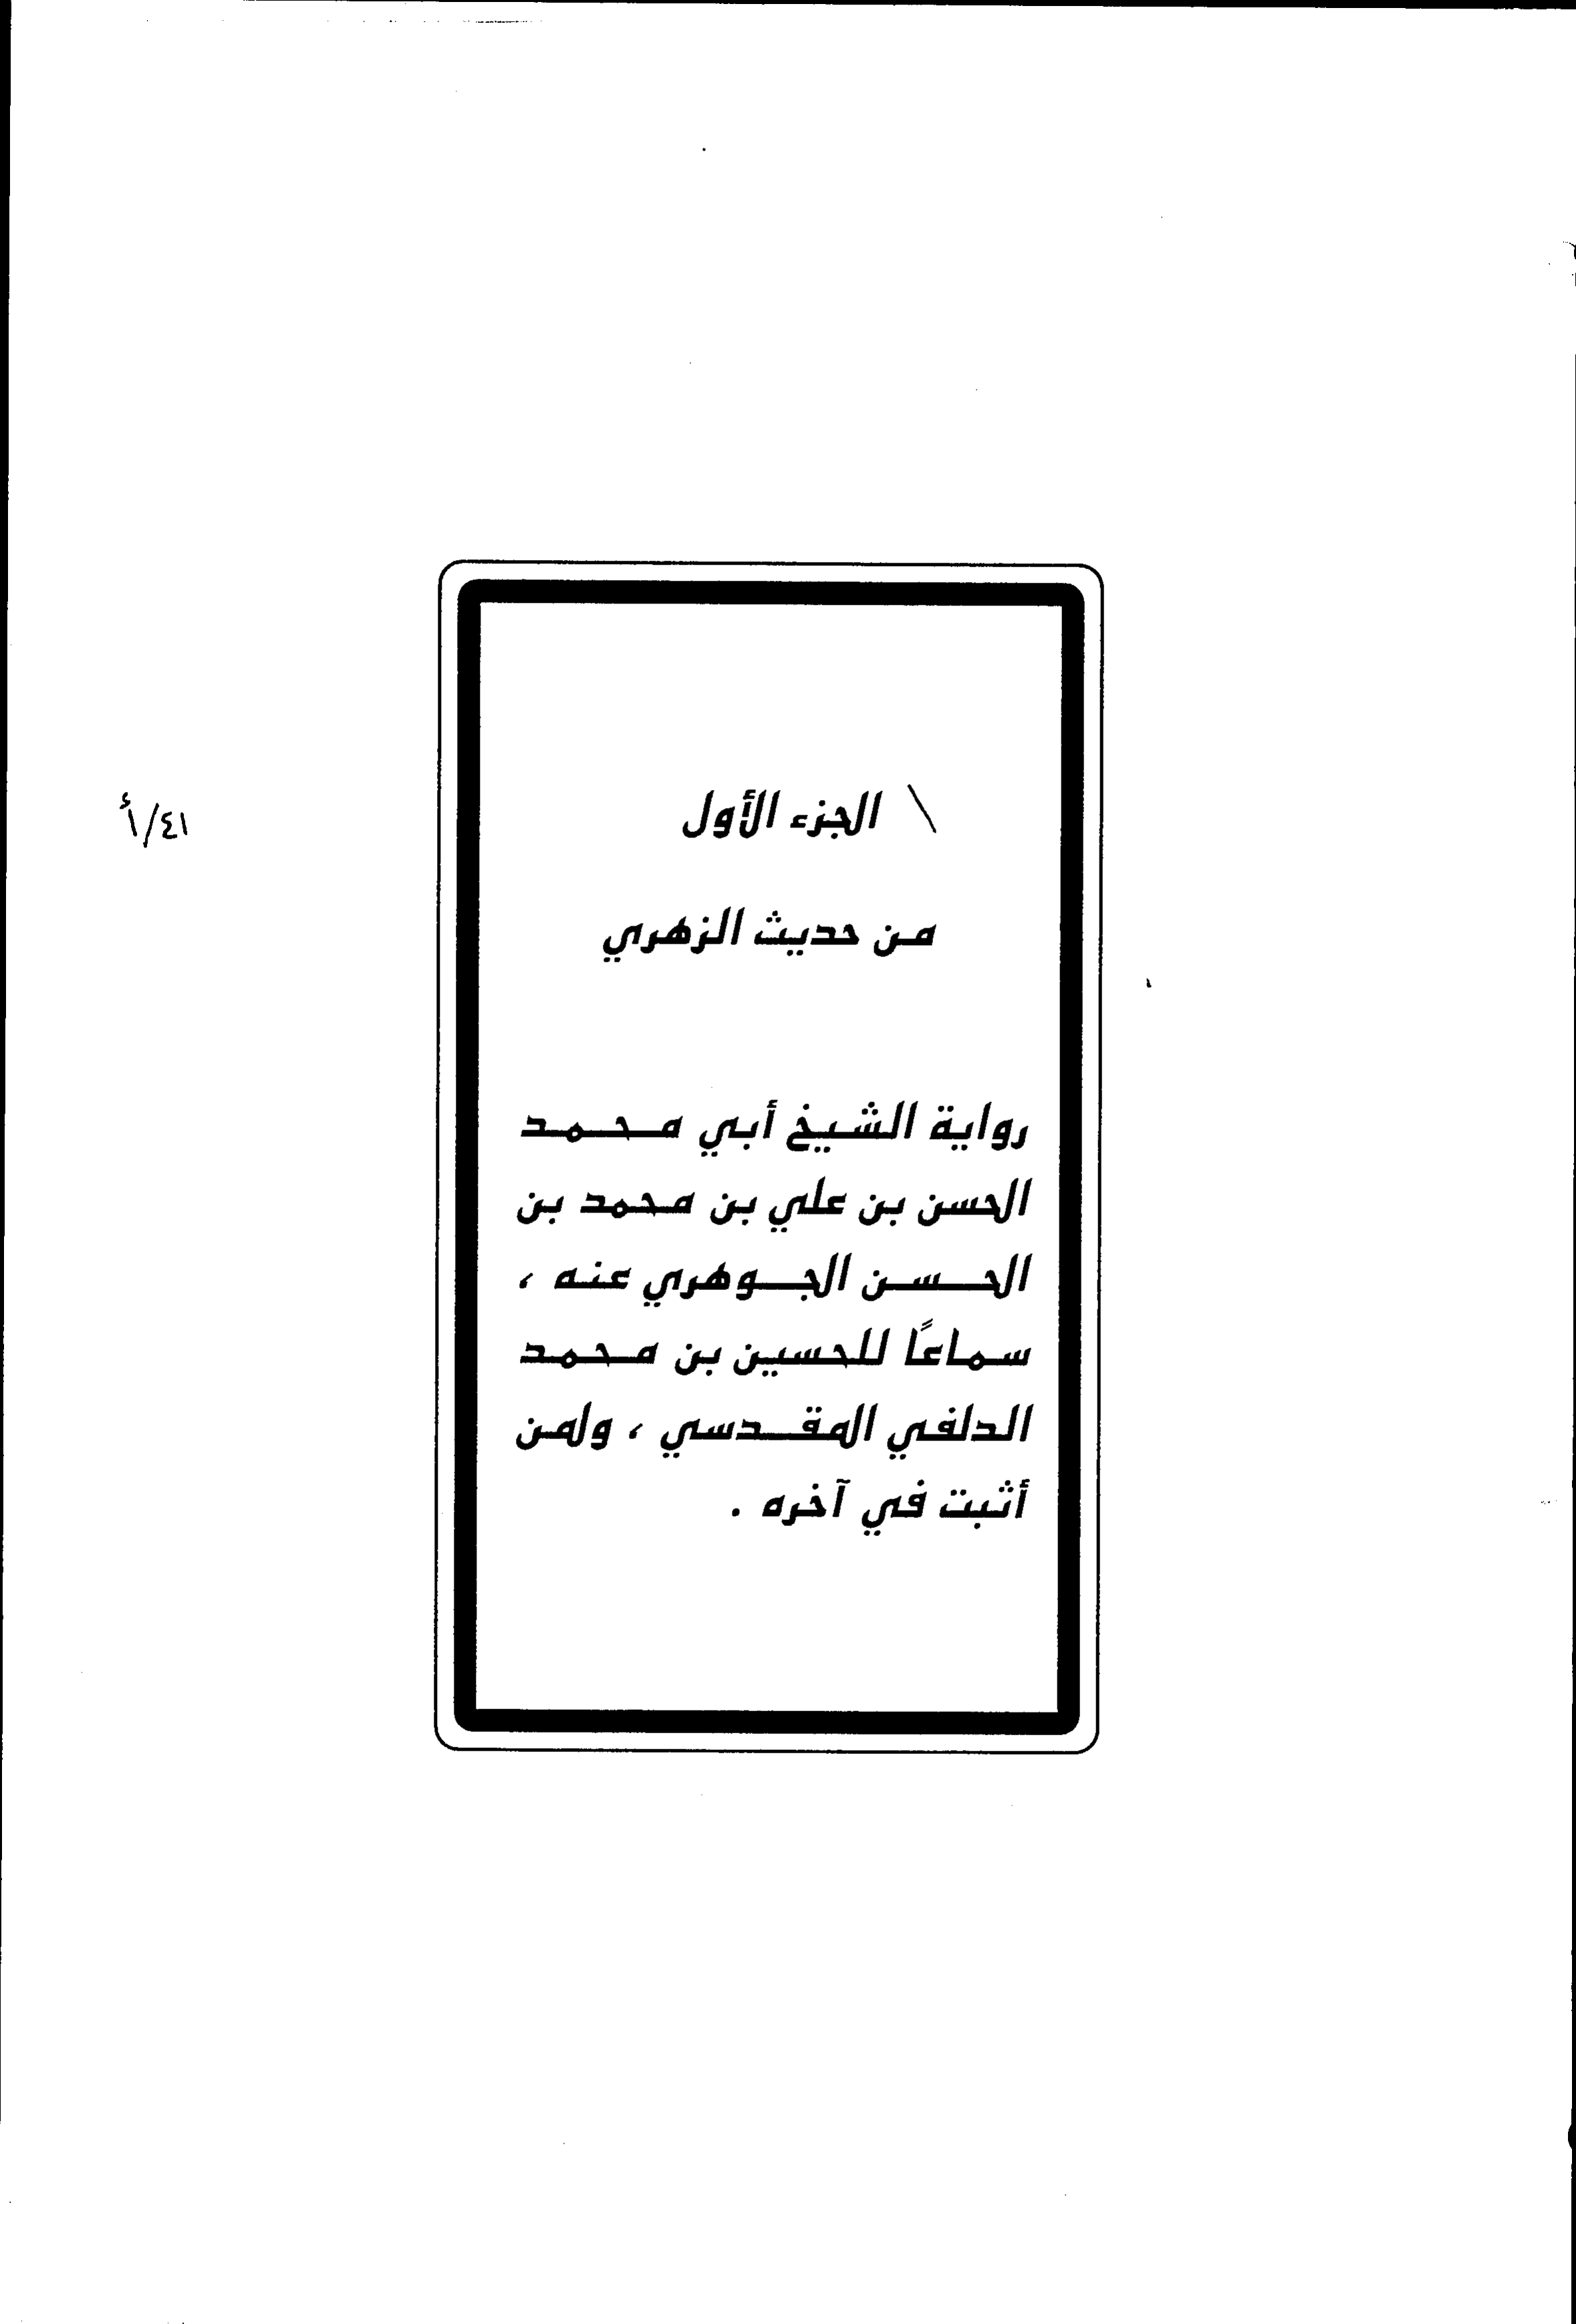 \ الجزء الأول
٤١/أ
من حديث الزهري
رواية الشيخ أبي محمد
الحسن بن علي بن محمد بن
الحسن الجوهري عنه ،
سماعًا للحسين بن محمد
الدلفي المقدسي ، ولمن
أثبت في آخره .